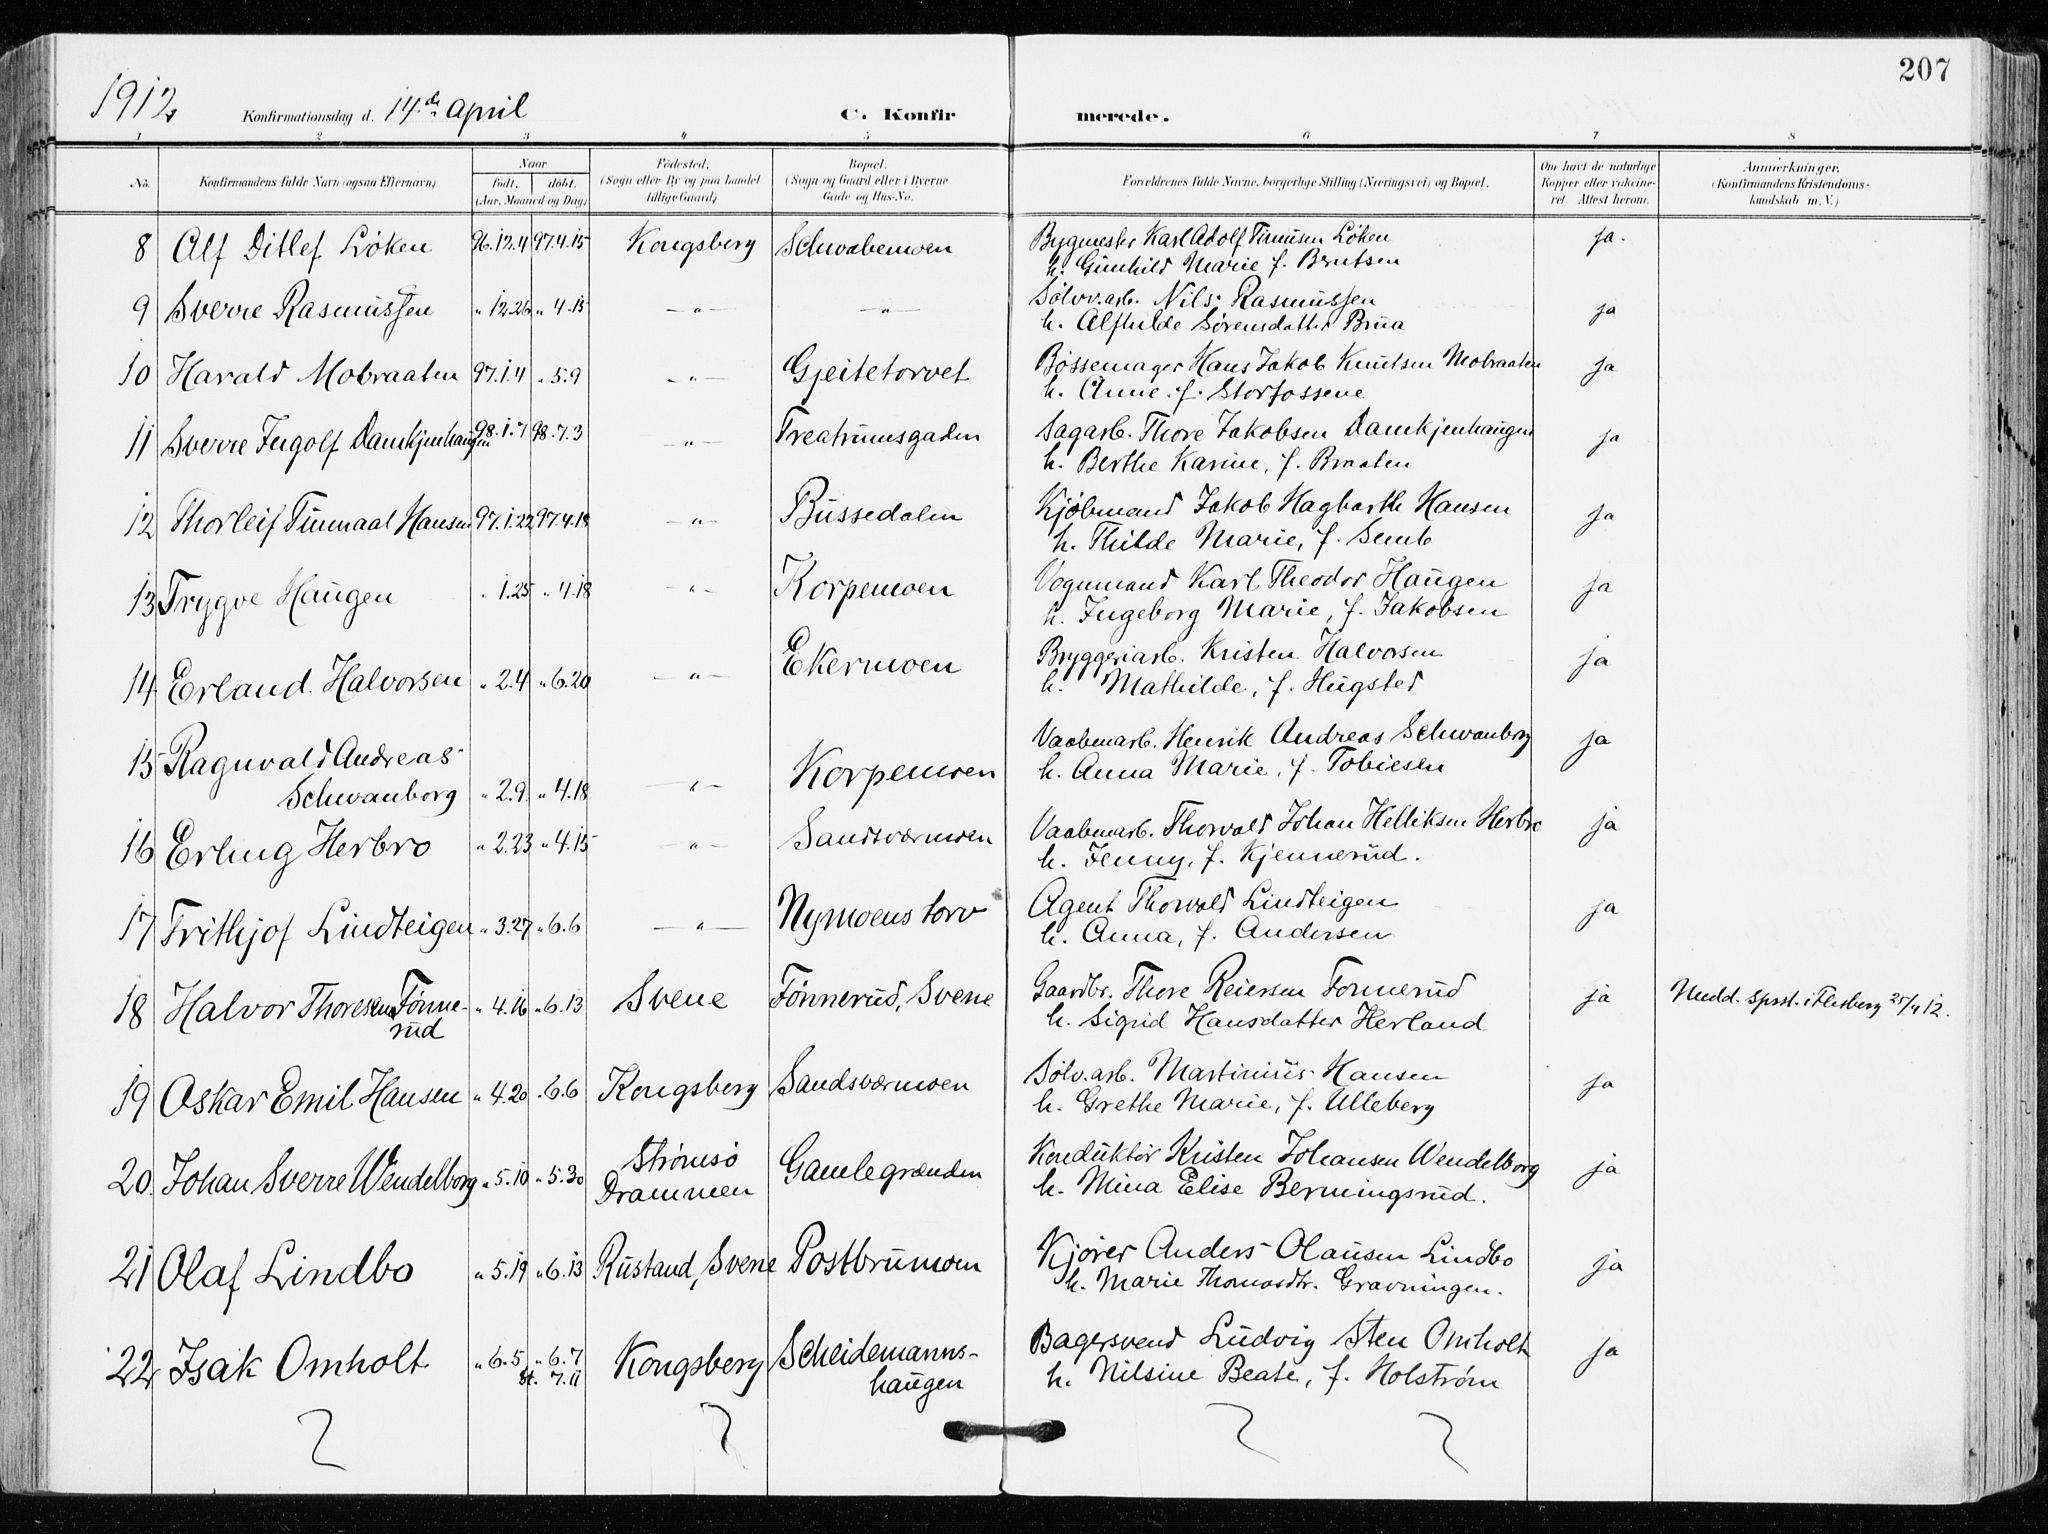 207
1912, Konfirmationsdag d. 14de April C. Konfirmerede.
1 2 3 4 5 6 7 8
No. Konfirmandens fulde Navn (ogsaa Efternavn) Naar født. døbt. (Aar, Maaned og Dag) Fødested. (Sogn eller By og paa Landet tillige Gaard) Bopæl. (Sogn og Gaard eller i Byerne Gade og Hus-No. Forældrenes fulde Navne, borgerlige Stilling (Næringsvei) og Bopæl. Om havt de naturlige Kopper eller vakcineret. Attest herom. Anmærkninger. (Konfirmandens Kristendomskundskab m. V.)
8 Alf Ditlef Løken 96.12.4 97.4.15 Kongsberg Schwabemoen Bygmester Karl Adolf Løken ja.
h. Gunhild Marie f. Berntsen
9 Sverre Rasmussen " 12.26 " 4.15 —"— —"— Sølvv.arb. Nils Rasmussen ja
h. Alfhilde Sørensdatter Brua
10 Harald Mobraaten 97.1.4 " 5.9 —"— Gjeitetorvet Bøssemager Hans Jakob Knutsen Mobraaten ja
h. Anne f. Storfossene
11 Sverre Ingolf Damkjenhaugen 98.1.7 98.7.3 —"— Treatrumsgaden Sagarb. Thore Jakobsen Damkjenhaugen ja
h. Berthe Karine, f. Braaten
12 Thorleif Hansen 97.1.22 97.4.18 —"— Bussedalen Kjøbmand Jakob Hagbarth Hansen ja
h. Thilde Marie, f. Semb
13 Trygve Haugen " 1.25 " 4.18 —"— Korpemoen Vognmand Karl Theodor Haugen ja
h. Ingeborg Marie, f. Jakobsen
14 Erland Halvorsen " 2.4 " 6.20 —"— Ekermoen Bryggeriarb. Kristen Halvorsen ja
h. Mathilde, f. Hugsted
15 Ragnvald Andreas Vaabenarb. Henrik Andreas Schwanborg ja
Schwanborg " 2.9 " 4.18 —"— Korpemoen h. Anna Marie, f. Tobiesen
16 Erling Herbro " 2.23 " 4.15 —"— Sandsværmoen Vaabenarb. Thorvald Johan Helliksen Herbro ja
h. Jenny, f. Kjennerud.
17 Frithjof Lindteigen " 3.27 " 6.6 —"— Nymoens torv Agent Thorvald Lindteigen ja
h. Anna, f. Andersen
18 Halvor Thoresen Fønne- " 4.16 " 6.13 Svene Fønnerud, Svene Gaardbr. Thore Reiersen Fønnerud ja Medd. sprst. i Flesberg 25/4 12.
rud h. Sigrid Hansdatter Herland
19 Oskar Emil Hansen " 4.20 " 6.6 Kongsberg Sandsværmoen Sølv.arb. Martinius Hansen ja
h. Grethe Marie, f. Ulleberg
20. Johan Sverre Wendelborg " 5.10 " 5.30 Strømsø Gamlegrænden Konduktør Kristen Johansen Wendelborg ja
Drammen h. Mina Elise Bermingsrud.
21 Olaf Lindbo " 5.19 " 6.13 Rustand, Svene Postbrumoen Kjører Anders Olausen Lindbo ja
h. Marie Thomasdtr. Gravningen.
22 Isak Omholt " 6.5 " 6.7 Kongsberg Scheidemanns- Bagersvend Ludvig Sten Omholt ja
st. 7.11 haugen h. Nilsine Beate, f. Holstrøm